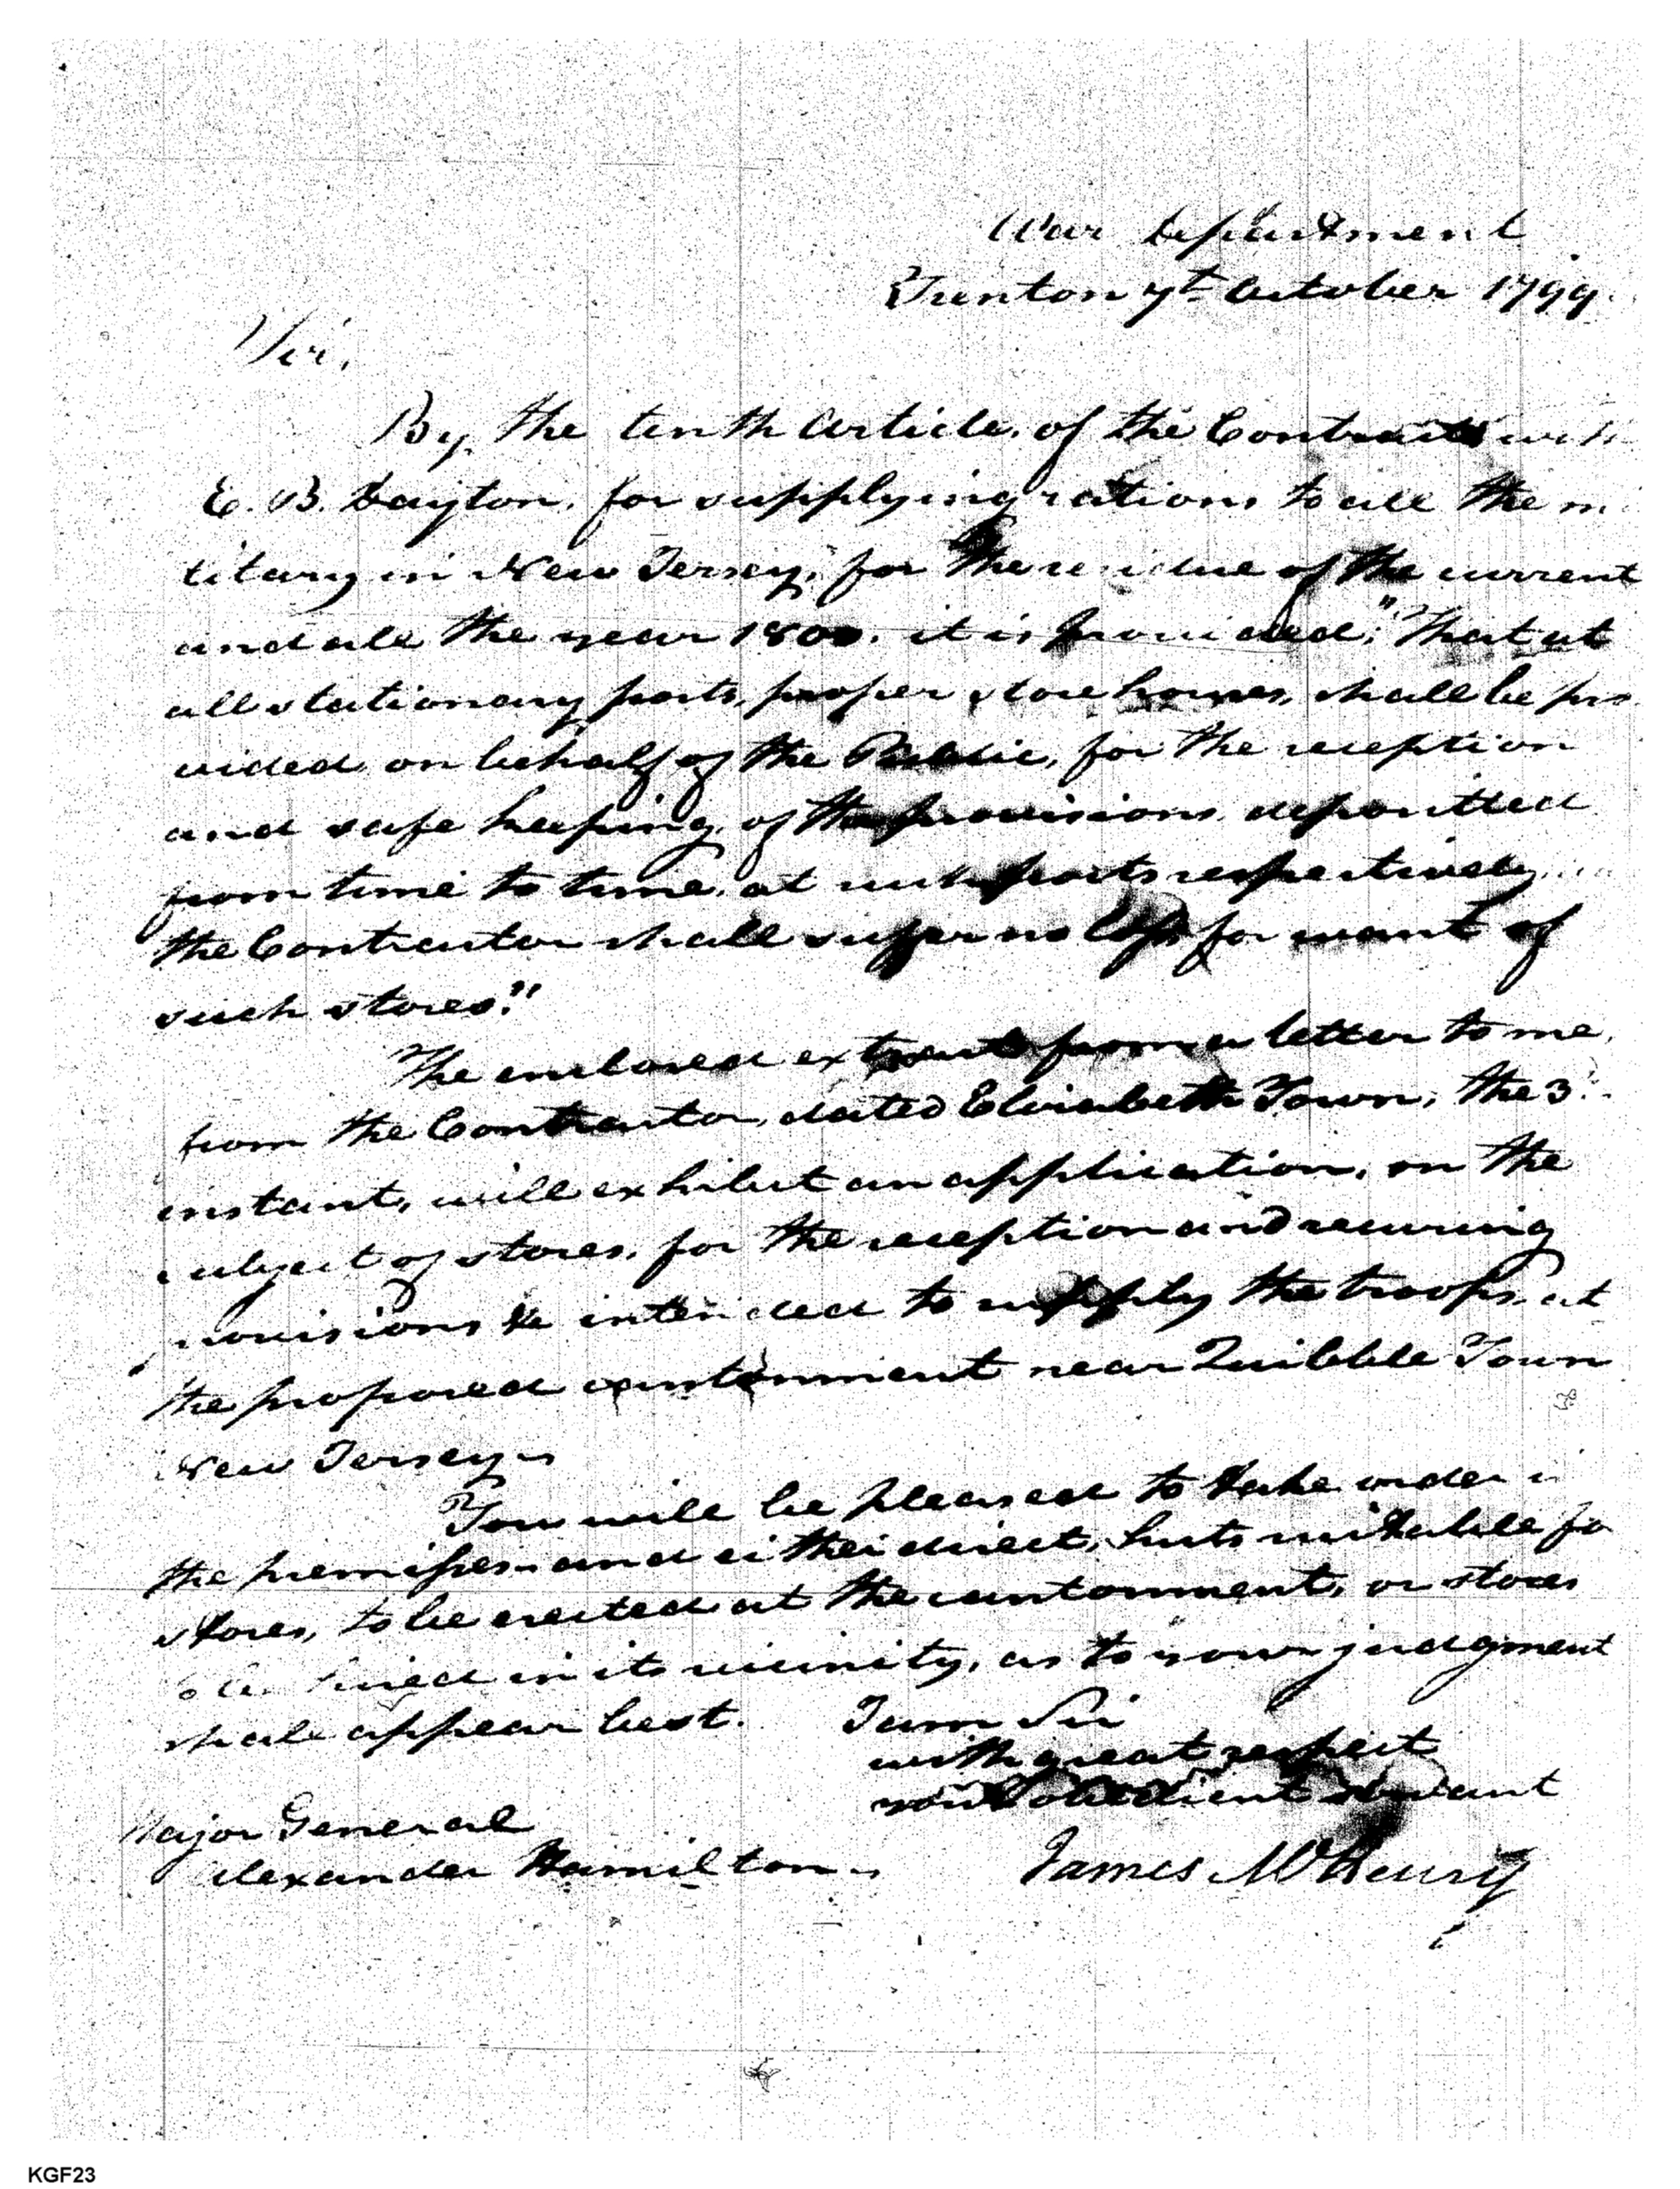 War Department
Trenton 7th October 1799.
Sir,
By, the tenth Article, of the Contract with
E. B. Dayton, for supplying rations to all the mi
litary in New Jersey, for the residue of the current
and all the year 1800. it is provided; "That at
all stationary posts, proper store houses, shall be pro
vided on behalf of the Public, for the reception
and safe keeping, of the provisions deposited
from time to time, at such posts respectively,
the Contractor shall suffer no loss for want of
such stores."
The enclosed extract from a letter to me,
from the Contractor, dated Elizabeth Town, the 3
instant, will exhibit an application, on the
subject of stores, for the reception and securing
provisions &c intended to supply the troops, at
the proposed cantonment near Quibble Town
New Jersey—
You will be pleased to take order in
the premises—and either direct, huts suitable for
stores, to be erected at the cantonment, or stores
to be hired in its vicinity, as to your judgment
shall appear best. I am Sir
with great respect
your obedient servant
Major General
Alexander Hamilton—
James McHenry
KGF23